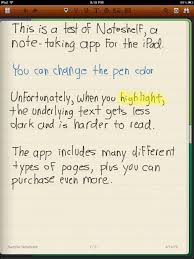 This is a test of Noteshelf, a
note-taking app for the iPad.
You can change the pen color
Unfortunately, when you highlight,
the underlying text gets less
dark and is harder to read.
The app includes many different
types of pages, plus you can
purchase even more.